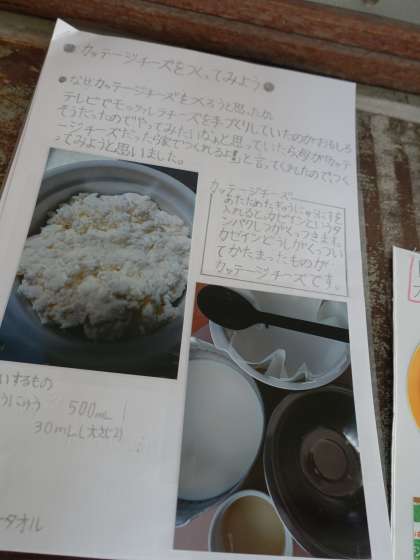 カッテージチーズをつくってみよう
なぜカッテージチーズをつくろうと思ったか
テレビでモッツァレラチーズを手づくりしていたのがおもしろ
そうだったのでやってみたいなぁと思っていたら母がカッテ
ージチーズだったら家でつくれるよ!と言ってくれたのでつく
ってみようと思いました。
カッテージチーズ
あたためたぎゅうにゅうにすを
入れるとカゼインというタ
ンパクしつがくっつきます。
カゼインどうしがくっつい
てかたまったものが
カッテージチーズです。
いするもの
うにゅう 500mL
30mL(大さじ2)
タオル